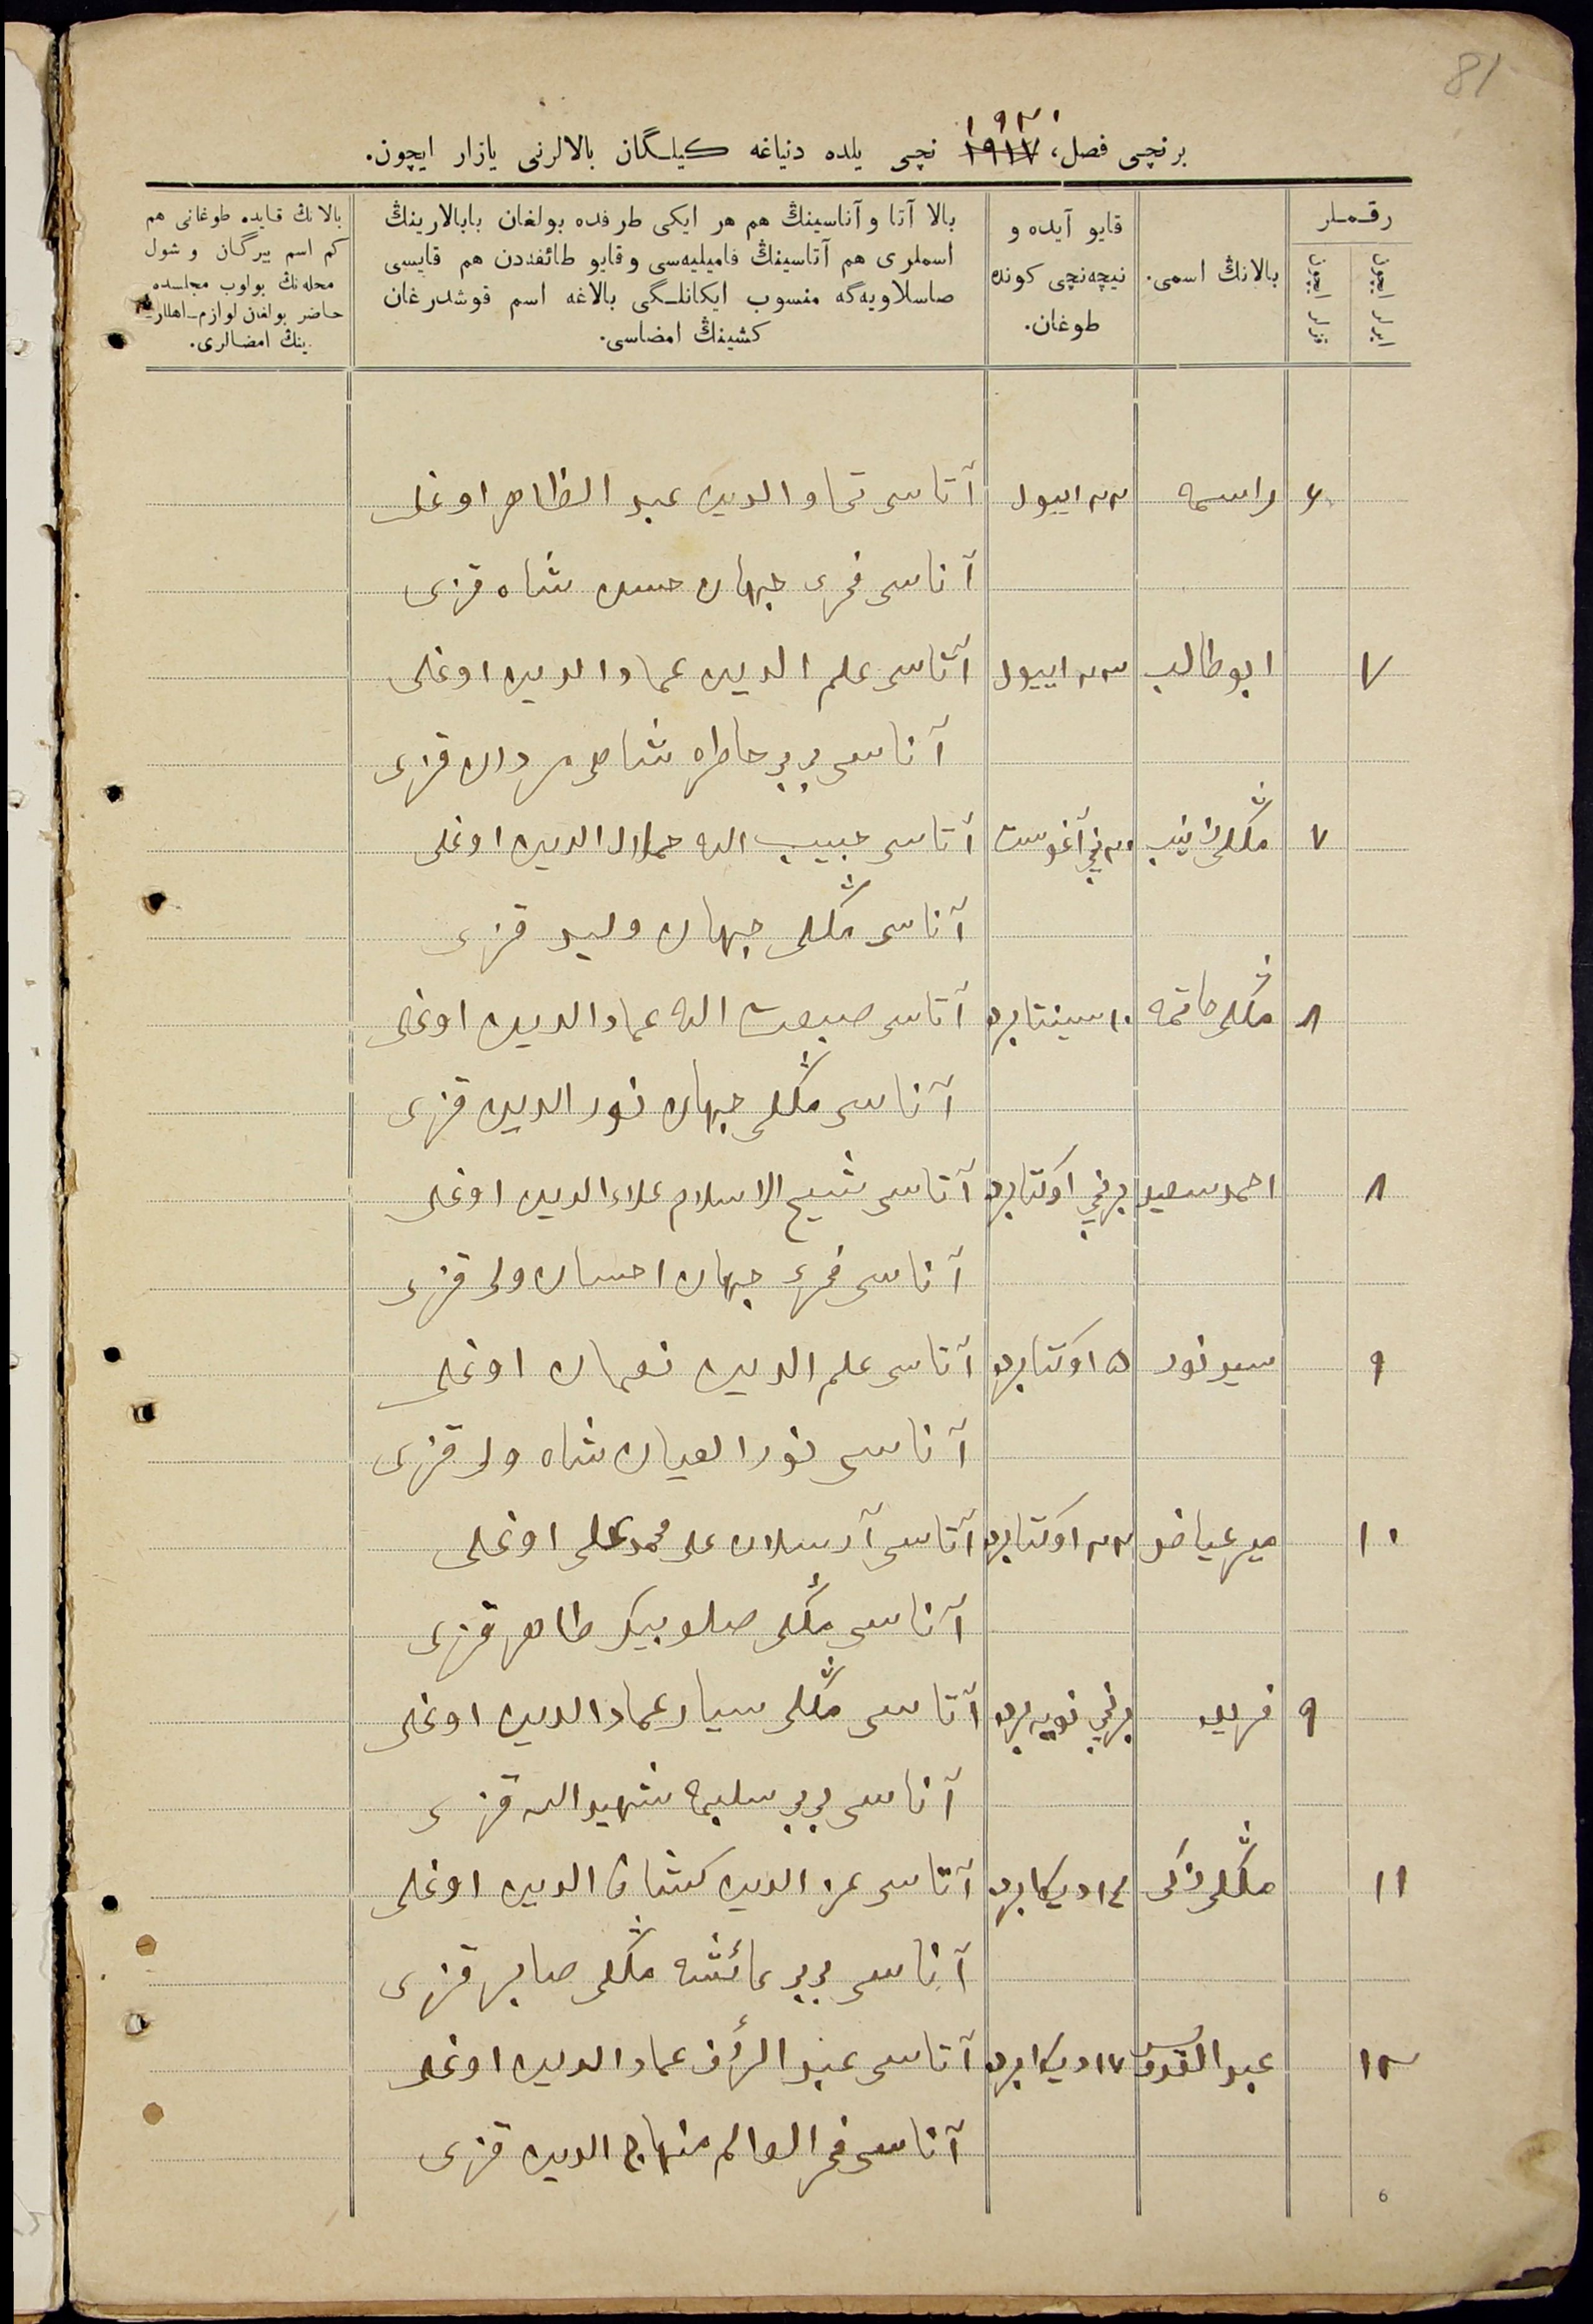 81
١٩٢٠
برنچی فصل، ١٩١٧ نچی یلده دنیاغه کیلـگان بالالرنی یازار ایچون.
رقـملر
ایرلر ایچون
قزلر ایچون
بالانڭ اسمی.
قایو آیده و
نیچه‌نچی کونده
طوغان.
بالا آتا و آناسینڭ هم هر ایکی طرفده بولغان بابالارینڭ
اسملری هم آتاسینڭ فامیلیه‌سی و قایو طائفه‌دن هم قایسی
صاسلاویه‌گه منسوب ایکانلـگی بالاغه اسم قوشدرغان
کشینڭ امضاسی.
بالانڭ قایده طوغانی هم
کم اسم بیرگان و شول
محله‌نڭ بولوب مجلسده
حاضر بولغان لوازم-اهللر-
ینڭ امضالری.
٦ راسمه ٢٢ اییول آتاسی تماوالدین عبد الظاهر اوغلی
آناسی فخری جهان حسن شاه قزی
٧ ابوطالب ٢٣ اییول آتاسی علم الدین عماد الدین اوغلی
آناسی بی بی خاطره شاهی مردان قزی
٧ مڭلی زینب ٢٠ نچی آغوست آتاسی حبیب الله جلال الدین اوغلی
آناسی مڭلی جهان ولید قزی
٨ مڭلی فاتمه ١٠ سینتابر آتاسی صبغت الله عماد الدین اوغلی
آناسی مڭلی جهان نور الدین قزی
٨ احمد سعید برنچی اوکتابر آتاسی شیخ الاسلام علاء الدین اوغلی
آناسی فخری جهان احسان ولی قزی
٩ سید نور ٥ اوکتابر آتاسی علم الدین نعمان اوغلی
آناسی نور العیان شاه ولی قزی
١٠ میر عیاض ٢٢ اوکتابر آتاسی آرسلان علی محمد علی اوغلی
آناسی مڭلی صلو بیکه طاهر قزی
٩ فریده برنچی نویه‌بر آتاسی مڭلی سیار عماد الدین اوغلی
آناسی بی بی سلیمه شهید الله قزی
١١ مڭلی زکی ١٤ دیکابر آتاسی عز الدین کشاف الدین اوغلی
آناسی بی بی عائشه مڭلی صابر قزی
١٢ عبد القدوس ١٧ دیکابر آتاسی عبد الرؤف عماد الدین اوغلی
آناسی فخر العالم منهاج الدین قزی
6